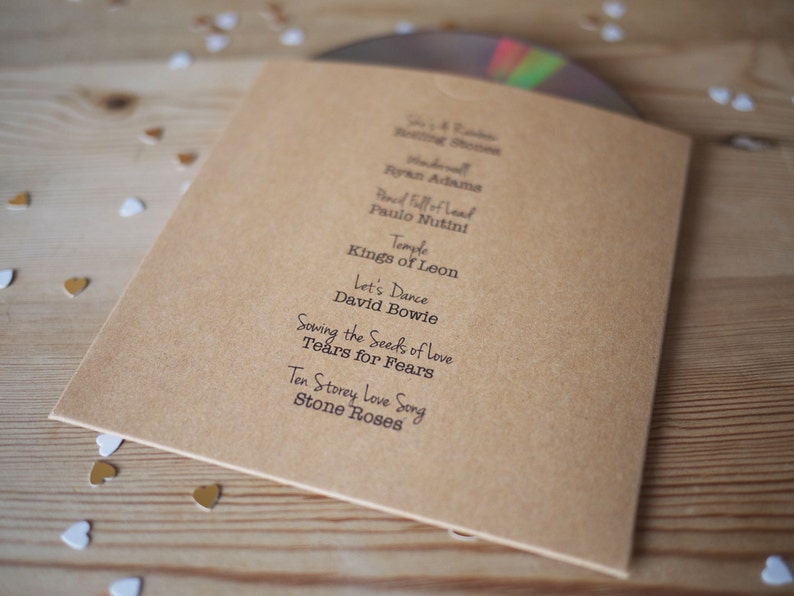 She's A Rainbow
Rolling Stones
Wonderwall
Ryan Adams
Pencil Full of Lead
Paulo Nutini
Temple
Kings of Leon
Let's Dance
David Bowie
Sowing the Seeds of Love
Tears for Fears
Ten Storey Love Song
Stone Roses